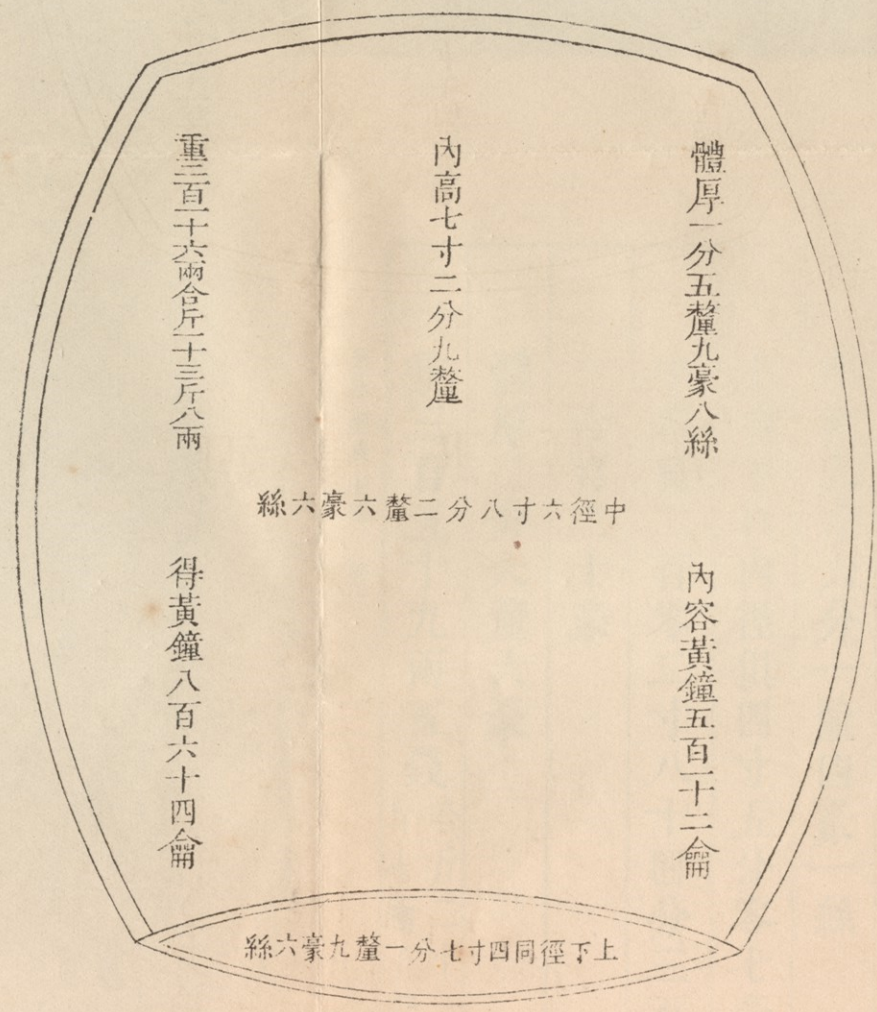 體厚一分五釐九豪八絲
內容黃鐘五百一十二龠
內高七寸二分九釐
中徑六寸八分二釐六豪六絲
重二百一十六兩合斤一十三斤八兩
得黃鐘八百六十四龠
上下徑同四寸七分一釐九豪六絲